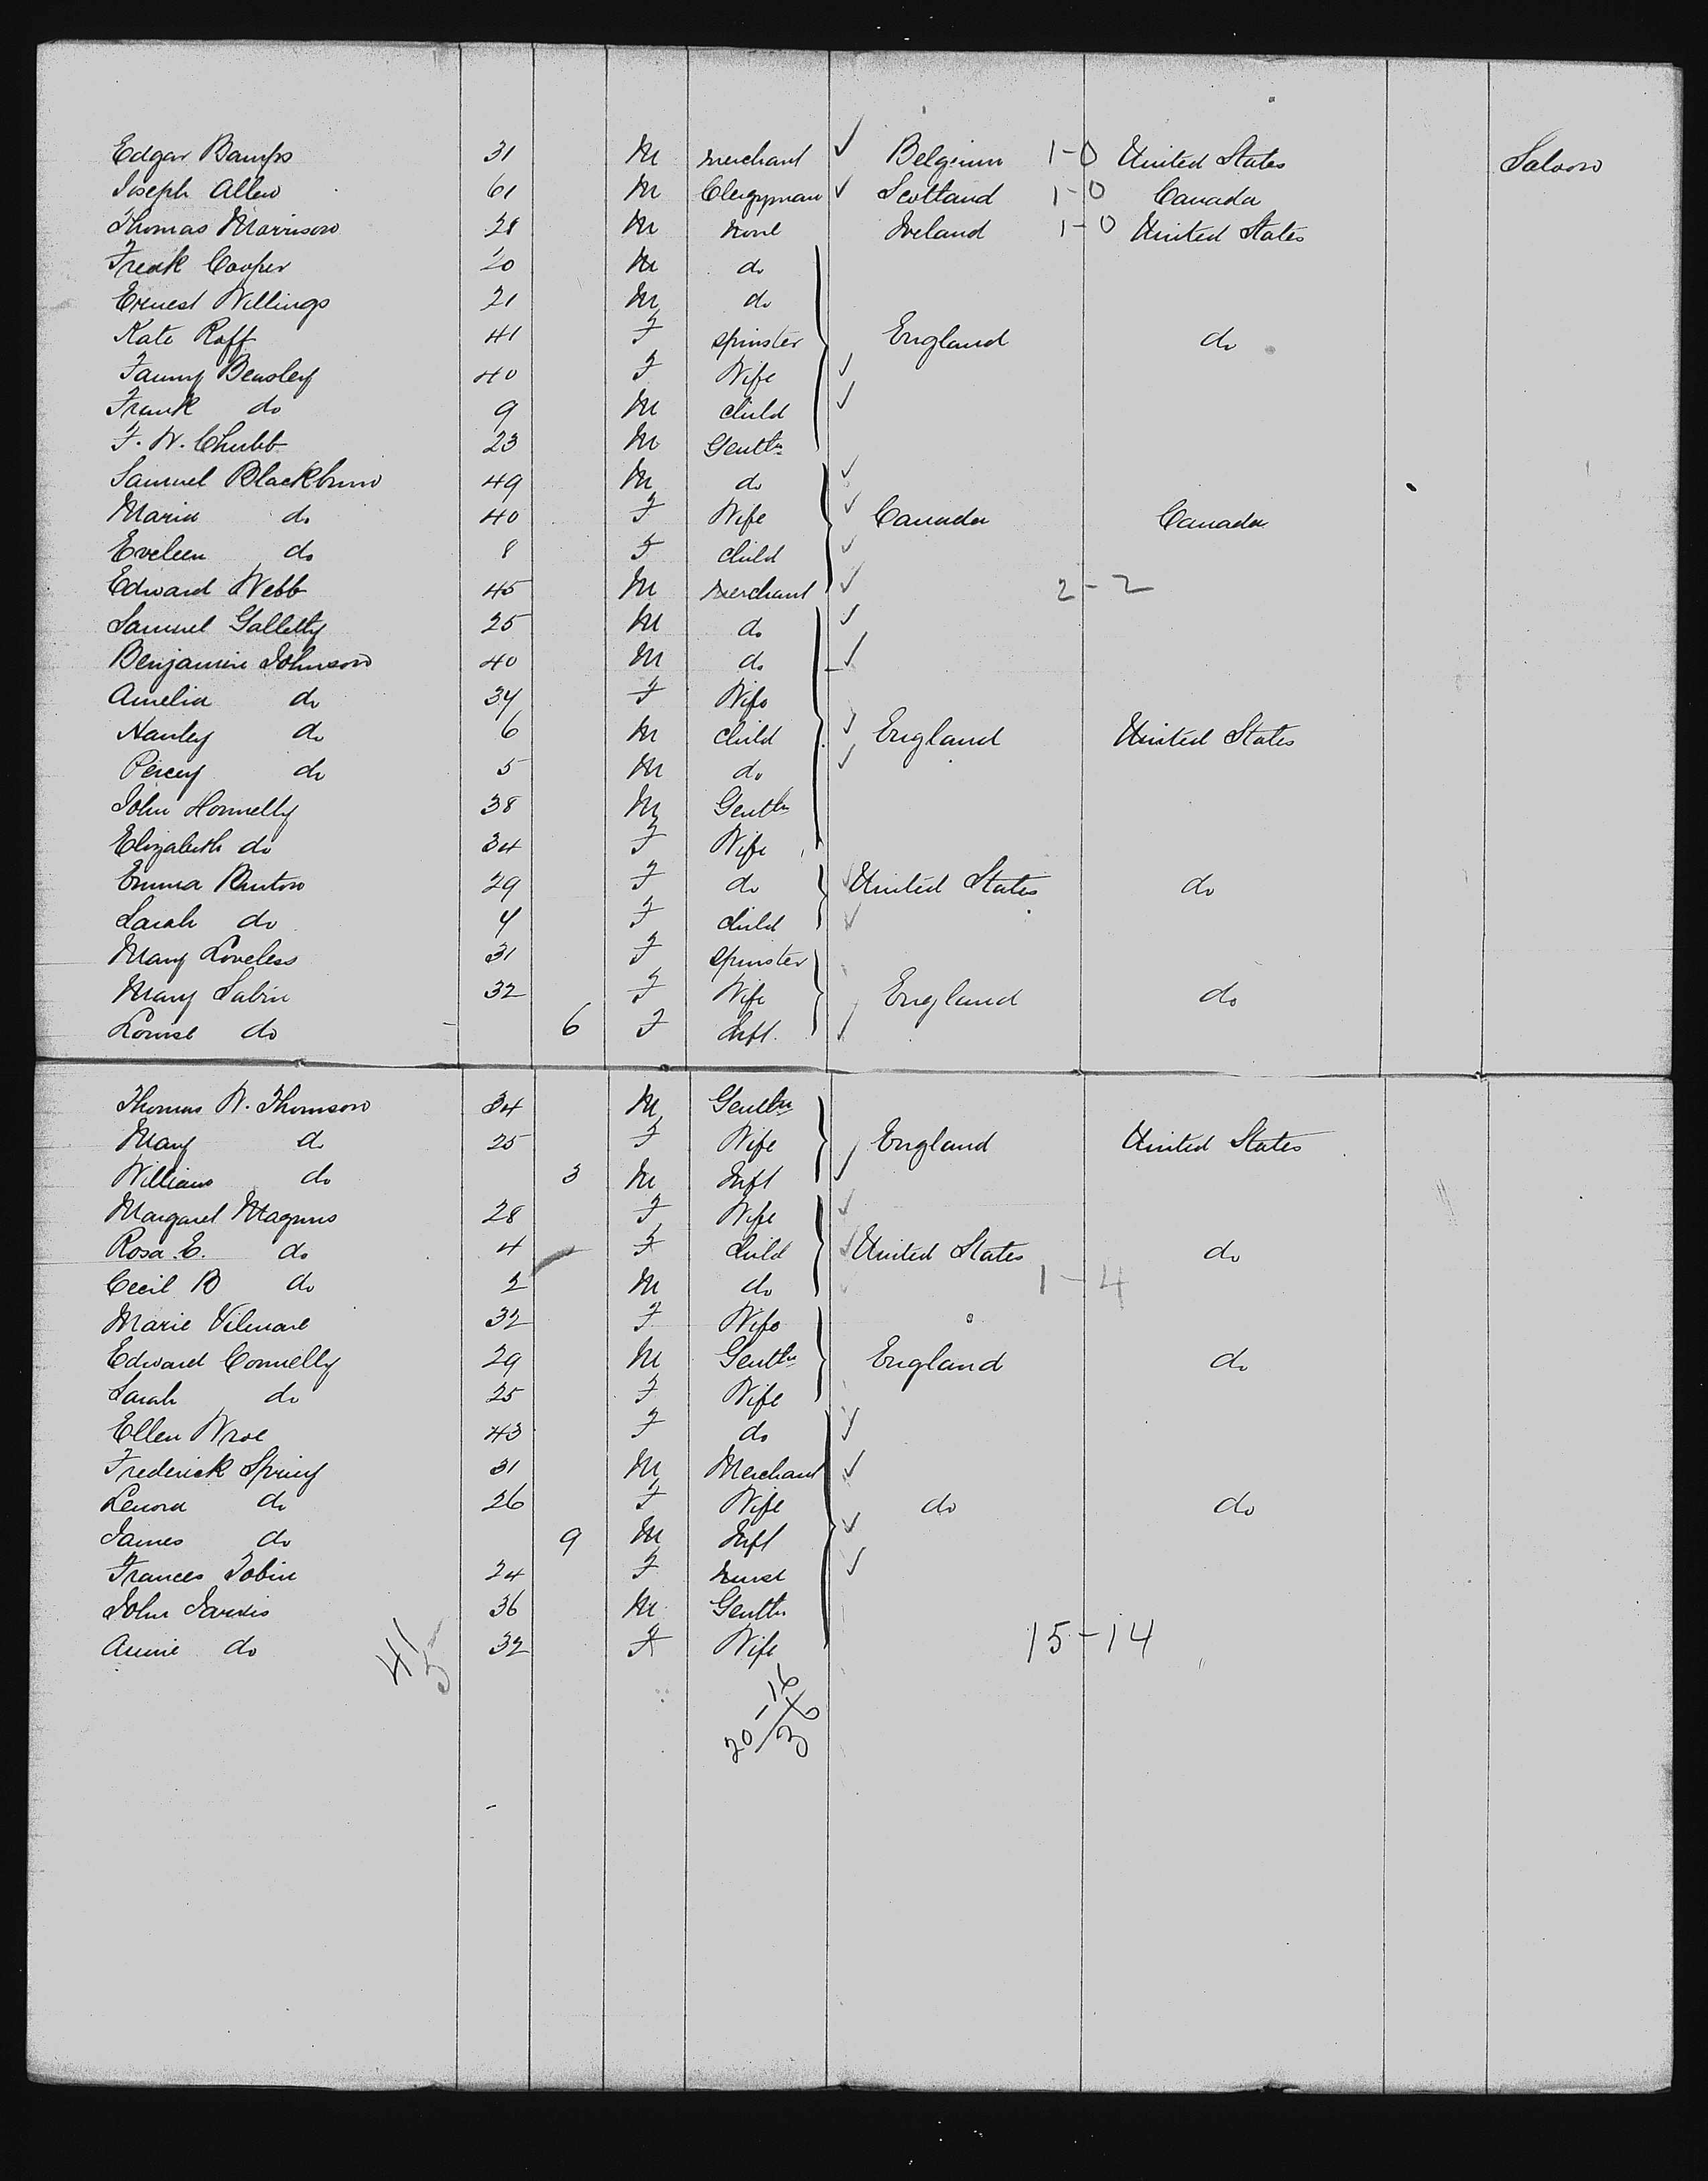 Edgar Bamps 31 M merchant ✓ Belgium 1-0 United States Saloon
Joseph Allen 61 M Clergyman ✓ Scotland 1-0 Canada
Thomas Morrison 28 M None Ireland 1-0 United States
Fredk Cooper 20 M do
Ernest Willings 21 M do
Kate Roff 41 F Spinster England do
Fanny Beasley 40 F Wife ✓
Frank do 9 M child ✓
F. W. Chubb 23 M Gentln
Samuel Blackburn 49 M do ✓
Maria do 40 F Wife ✓ Canada Canada
Eveleen do 8 F child ✓
Edward Webb 45 M Merchant ✓ 2-2
Samuel Galletly 25 M do ✓
Benjamin Johnson 40 M do ✓
Amelia do 34 F Wife
Hanley do 6 M child ✓ England United States
Percy do 5 M do ✓
John Honnelly 38 M Gentln
Elizabeth do 34 F Wife
Emma 29 F do ✓ United States do
Sarah do 4 F child ✓
Mary Loveless 31 F Spinster
Mary Sabin 32 F Wife England do
Louise do 6 F Inft ✓
Thomas W. Thomson 34 M Gentln
Mary do 25 F Wife England United States
William do 3 M Inft ✓
Margaret Magnus 28 F Wife ✓
Rosa E. do 4 F child ✓ United States do
Cecil B do 2 M do ✓ 1-4
Marie 32 F Wife
Edward Connelly 29 M Gentln England do
Sarah do 25 F Wife
Ellen Wroe 43 F do ✓
Frederick Spring 31 M Merchant ✓
Lenora do 26 F Wife do do
James do 9 M Inft ✓
Frances Tobin 24 F Nurse ✓
John Jarvis 36 M Gentln
Annie do 32 F Wife 15-14
41
5
16
20